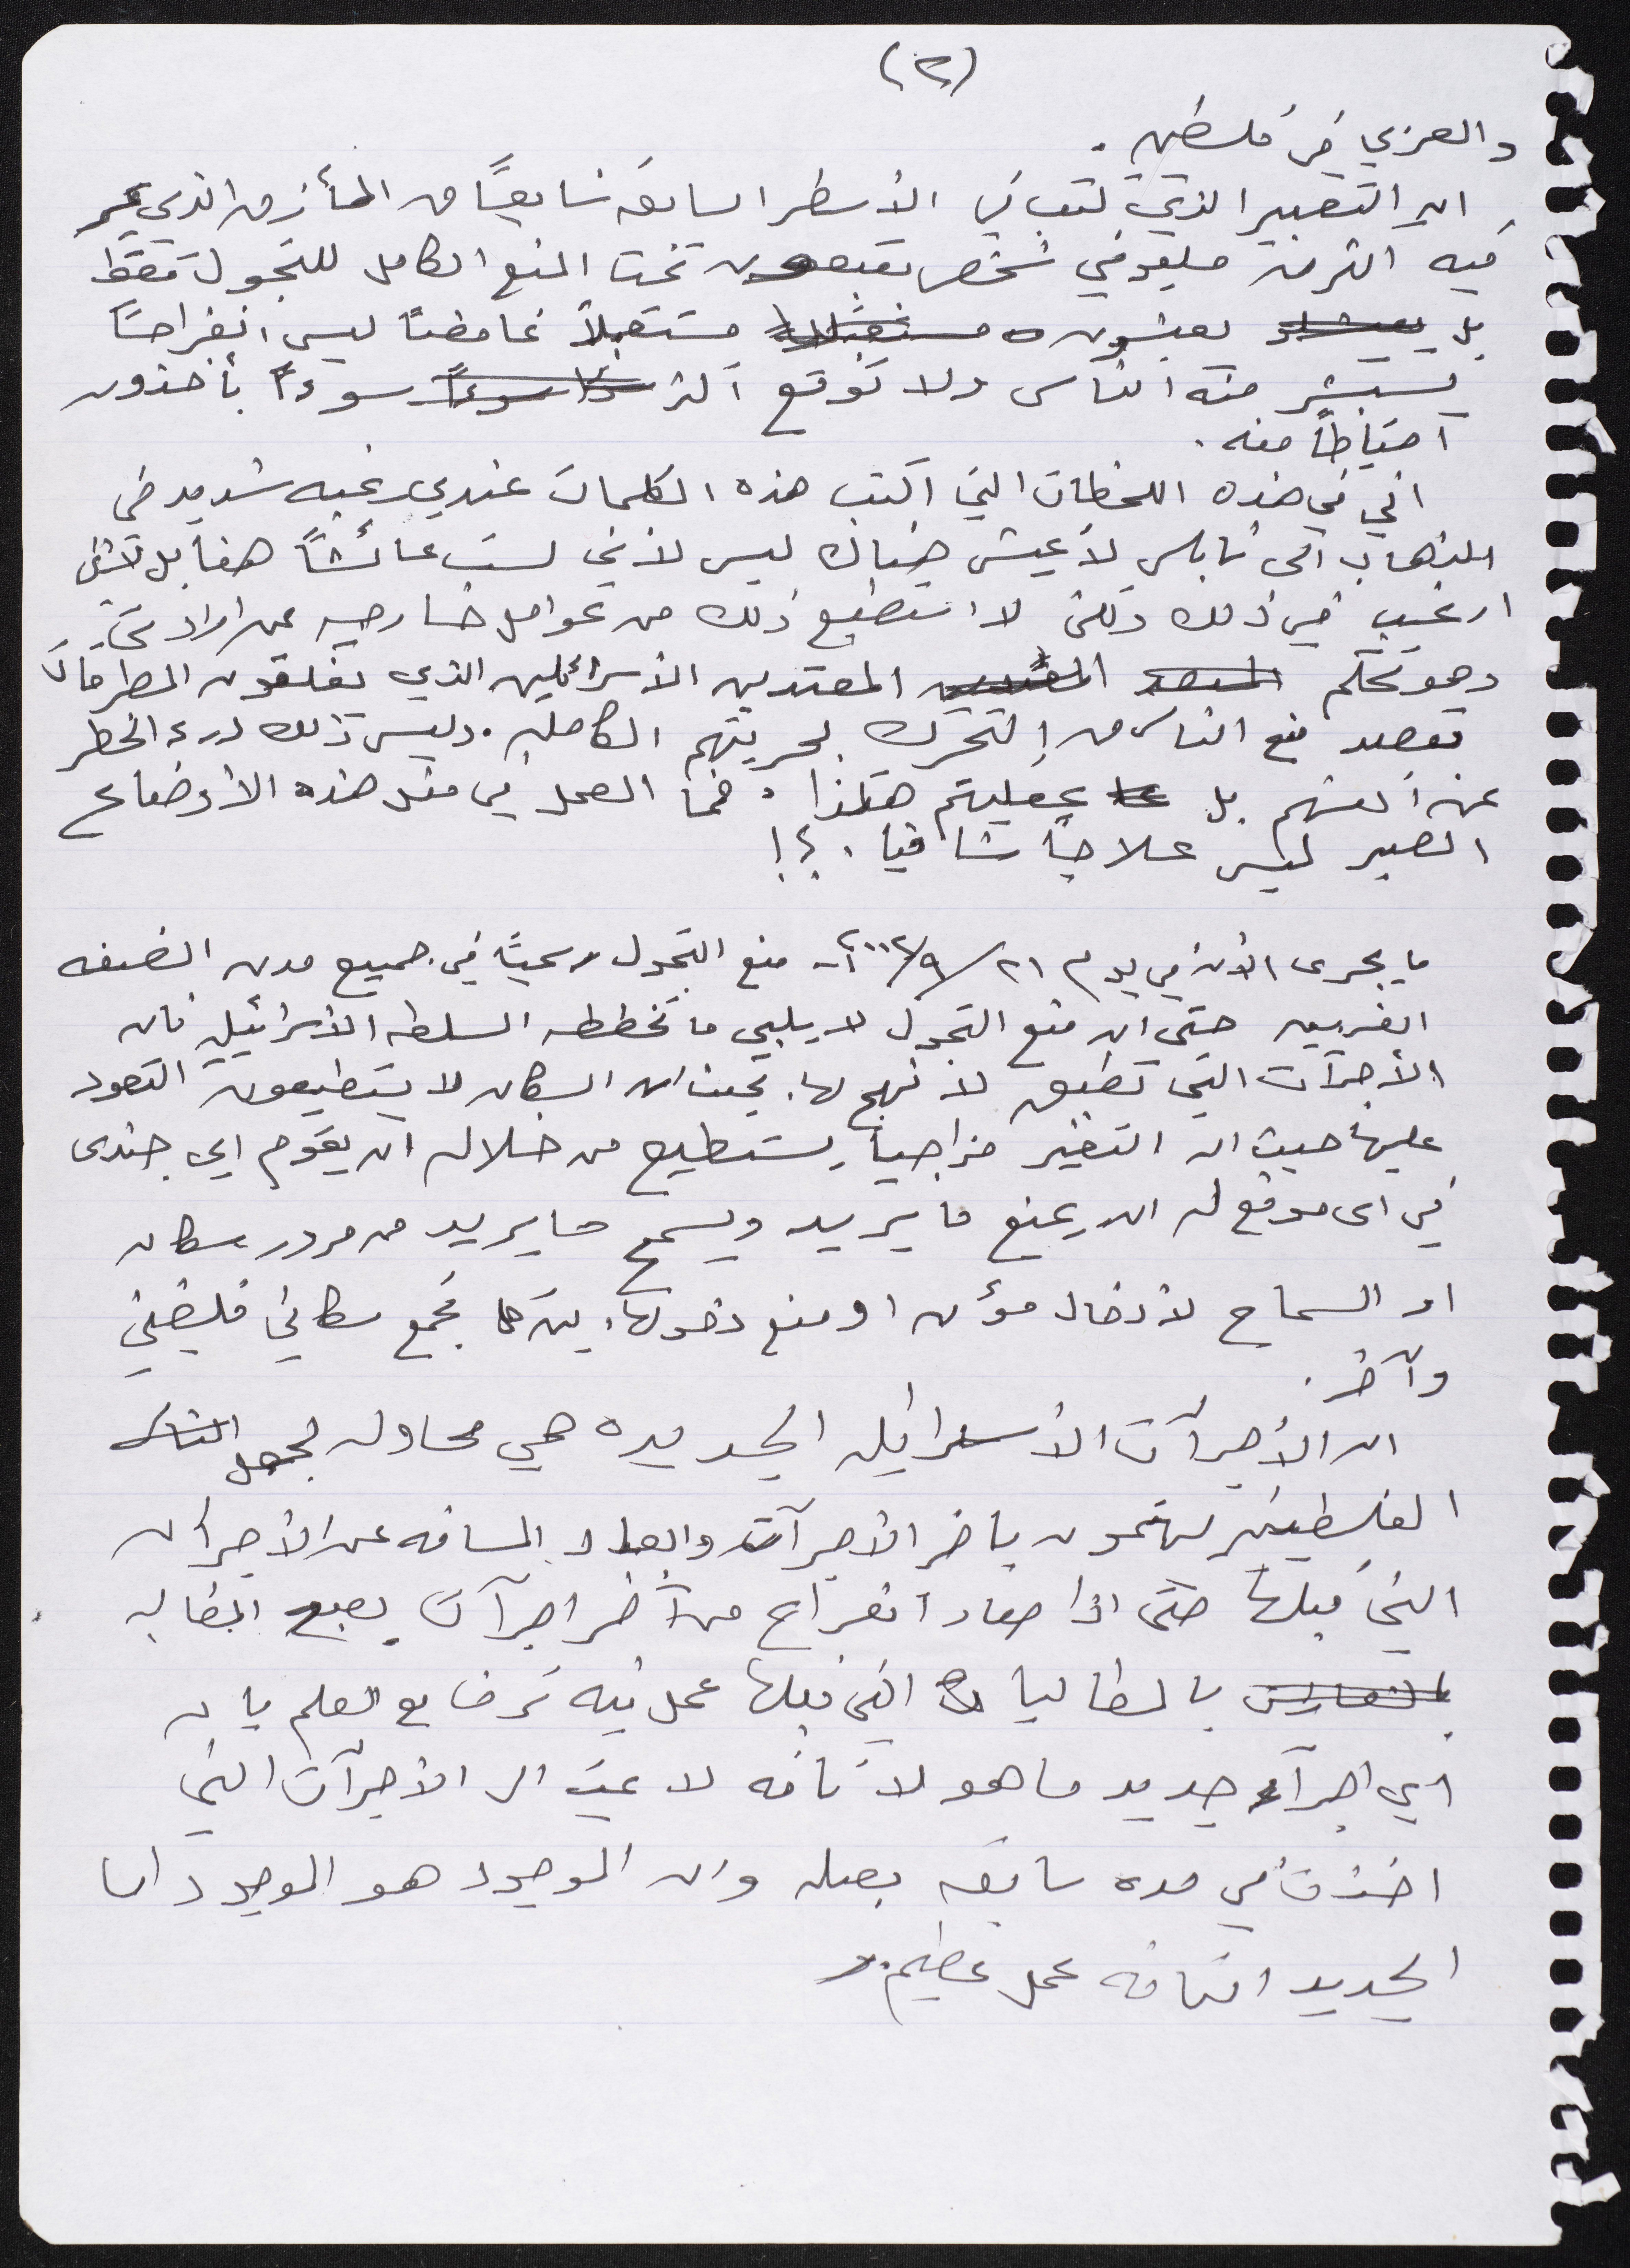 (٢)
والعربي في فلسطين.
ان التعبير الذي كتب في الأسطر السابقه نابعاً من المأزق الذي يمر
فيه اكثر من مليوني شخص يقبعون تحت المنع الكامل للتجول فقط
بل يعيشون مستقبلاً غامضاً ليس انفراجاً
يستبشر منه الناس ولا توقع اكثر سوءاً يأخذون
احتياطاً منه.
اني في هذه اللحظات التي اكتب هذه الكلمات عندي رغبه شديد في
الذهاب الى نابلس لأعيش هناك ليس لأني لست عائشاً هنا بل لانني
ارغب في ذلك ولكن لا استطيع ذلك من عوامل خارجيه عن ارادتي
وهو تحكم المعتدين الأسرائلين الذي يغلقون الطرقات
بقصد منع الناس من التحرك بحريتهم الكامله. وليس ذلك درء الخطر
عن انفسهم بل عقليتهم هكذا. فما العمل في مثل هذه الأوضاع
الصبر ليس علاجاً شافيا.؟!
ما يجرى الآن في يوم ٢١/٩/٢٠٠٢ - منع التجول رسمياً في جميع مدن الضفه
الغربيه حتى ان منع التجول لا يلبي ما تخططه السلطه الأسرائيليه فان
الأجرآت التي تطبق لا نهج لها. بحيث ان السكان لا يستطيعون التعود
عليها حيث ان التغير مزاجياً يستطيع من خلاله ان يقوم اي جندى
في اى موقع له ان يمنع ما يريد ويسمح ما يريد من مرور سكان
او السماح لأدخال مؤن او منع دخولها. بين كل تجمع سكاني فلسطيني
وآخر.
ان الأجرآت الأسرائيليه الجديده هي محاوله لجعل الناس
الفلسطينين يهتمون بأخر الأجرآت وابعاد المسافه عن الأجرآت
التي قبلها حتى اذا صار انفراج من آخر اجرآت يصبح المطالبه
بالمطاليات التي قبلها عمل فيه ترف مع العلم بان
اي اجرآء جديد ما هو الا اضافه لا غير الى الأجرآت التي
اخذت في مده سابقه بصله وان الموجود هو الموجود اما
الجديد اضافه عمل عظيم.